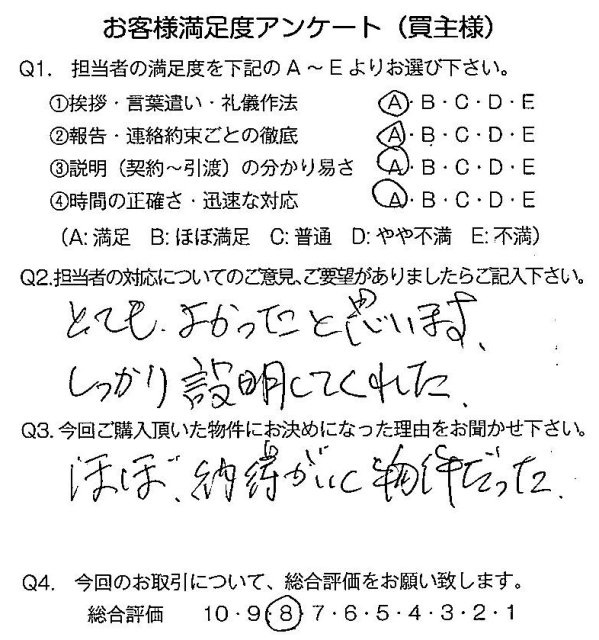 お客様満足度アンケート（買主様）
Q1. 担当者の満足度を下記のA～Eよりお選び下さい。
①挨拶・言葉遣い・礼儀作法 A・B・C・D・E
②報告・連絡約束ごとの徹底 A・B・C・D・E
③説明（契約～引渡）の分かり易さ A・B・C・D・E
④時間の正確さ・迅速な対応 A・B・C・D・E
（A:満足 B:ほぼ満足 C:普通 D:やや不満 E:不満）
Q2.担当者の対応についてのご意見、ご要望がありましたらご記入下さい。
とても、よかったと思います、
しっかり説明してくれた、
Q3.今回ご購入頂いた物件にお決めになった理由をお聞かせ下さい。
ほぼ、納得がいく物件だった、
Q4. 今回のお取引について、総合評価をお願い致します。
総合評価 10・9・8・7・6・5・4・3・2・1